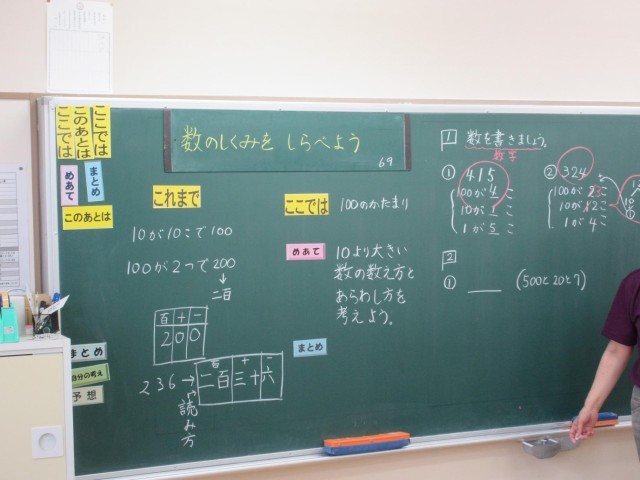 ここでは
このあとは
ここでは
めあて
まとめ
このあとは
まとめ
自分の考え
予想
数のしくみを しらべよう
69
これまで
10が10こで100
100が2つで200
↓
二百
百 十 一
2 0 0
236→
読み方
百 十 一
二百 三十 六
ここでは
100のかたまり
めあて
10より大きい
数の数え方と
あらわし方を
考えよう。
まとめ
1 数を書きましょう。
数字
① 415
100が 4 こ
10が 1 こ
1が 5 こ
② 324
100が 3こ
10が 12こ
1が 4こ
2
① ___ (500と20と7)